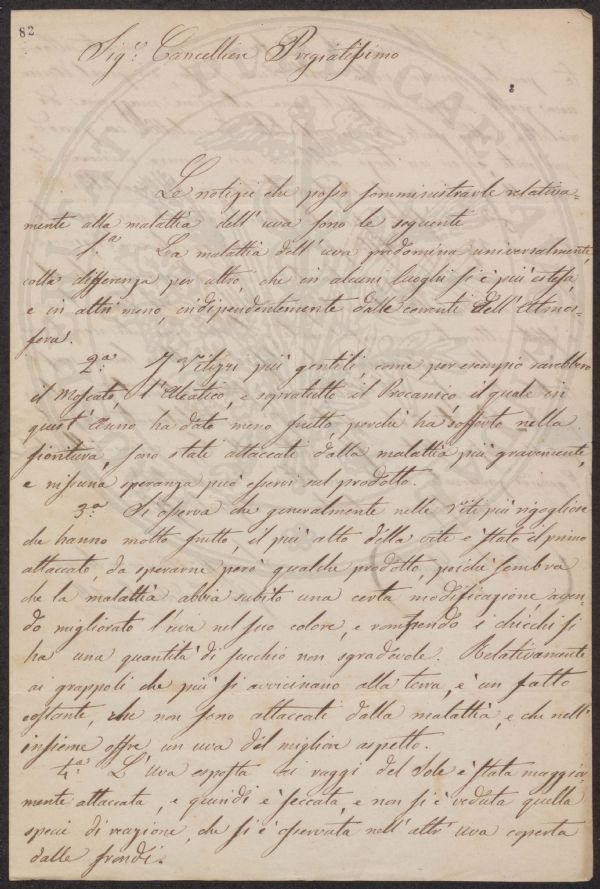 82
Sig.re Cancelliere Pregiatissimo
Le notizie che posso somministrarle relativa=
mente alla malattia dell' uva sono le seguente
1.a La malattia dell' uva predomina universalmente
colla differenza per altro, che in alcuni luoghi si è più estesa
e in altri meno, indipendentemente dalle correnti dell' Atmos=
fera.
2.a I Vitigni più gentili, come per esempio sarebbero
il Moscato, l'Aleatico, e sopratutto il Procanico il quale in
quest' Anno ha dato meno frutto, perchè ha sofferto nella
fioritura, sono state attaccati dalla malattia più gravemente,
e nissuna speranza può esservi sul prodotto.
3.a Si osserva che generalmente nelle Viti più rigogliose
che hanno molto frutto, il più alto della vite è stato il primo
attaccato, da sperarne però qualche prodotto, poichè sembra
che la malattia abbia subito una certa modificazione, aven=
do migliorato l'uva nel suo colore, e rompendo i chicchi si
ha una quantità di succhio non sgradevole. Relativamente
ai grappoli che più si avvicinano alla terra, è un fatto
costante, che non sono attaccati dalla malattia, e che nell'
insieme offre un uva del migliore aspetto.
4.a L'Uva esposta ai raggi del Sole è stata maggior=
mente attaccata, e quindi è seccata, e non si è veduta quella
specie di reazione, che si è osservata nell' altr' uva coperta
dalle frondi.